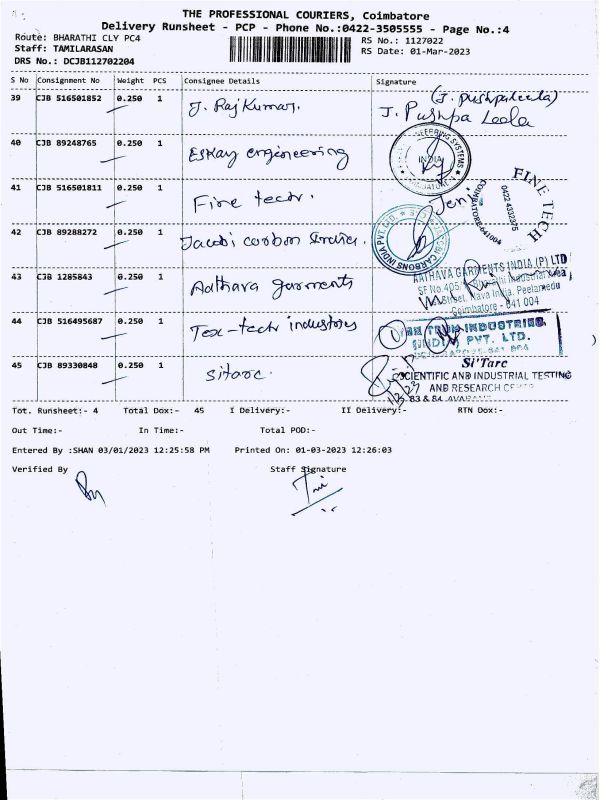 THE PROFESSIONAL COURIERS, Coimbatore
Delivery Runsheet - PCP - Phone No.:0422-3505555 - Page No.:4
Route: BHARATHI CLY PC4
RS No.: 1127022
Staff: TAMILARASAN
RS Date: 01-Mar-2023
DRS No.: DCJB112702204
S No Consignment No Weight PCS Consignee Details Signature
39 CJB 516501852 0.250 1 J. Rajkumar. (J. pushpaleela)
J. Pushpa Leela
40 CJB 89248765 0.250 1 Eskay engineering
EERING SYSTEMS
INDIA
41 CJB 516501811 0.250 1 Fine tech. Jeni
FINE TECH
0422 4332375
COIMBATORE-641004
42 CJB 89288272 0.250 1 Jacobi carbon
CARBONS INDIA PVT. LTD.
43 CJB 1285843 0.250 1 Aathava garments
AATHAVA GARMENTS INDIA (P) LTD
SF No.405/
Street, Nava India, Peelamedu
Coimbatore - 641 004
44 CJB 516495687 0.250 1 Tex-tech industries
INDUSTRIES
(INDIA) PVT. LTD.
45 CJB 89330848 0.250 1 Sitarc.
Si'Tarc
SCIENTIFIC AND INDUSTRIAL TESTING
AND RESEARCH
83 & 84
1/3/23
Tot. Runsheet:- 4 Total Dox:- 45 I Delivery:- II Delivery:- RTN Dox:-
Out Time:- In Time:- Total POD:-
Entered By :SHAN 03/01/2023 12:25:58 PM Printed On: 01-03-2023 12:26:03
Verified By Staff Signature